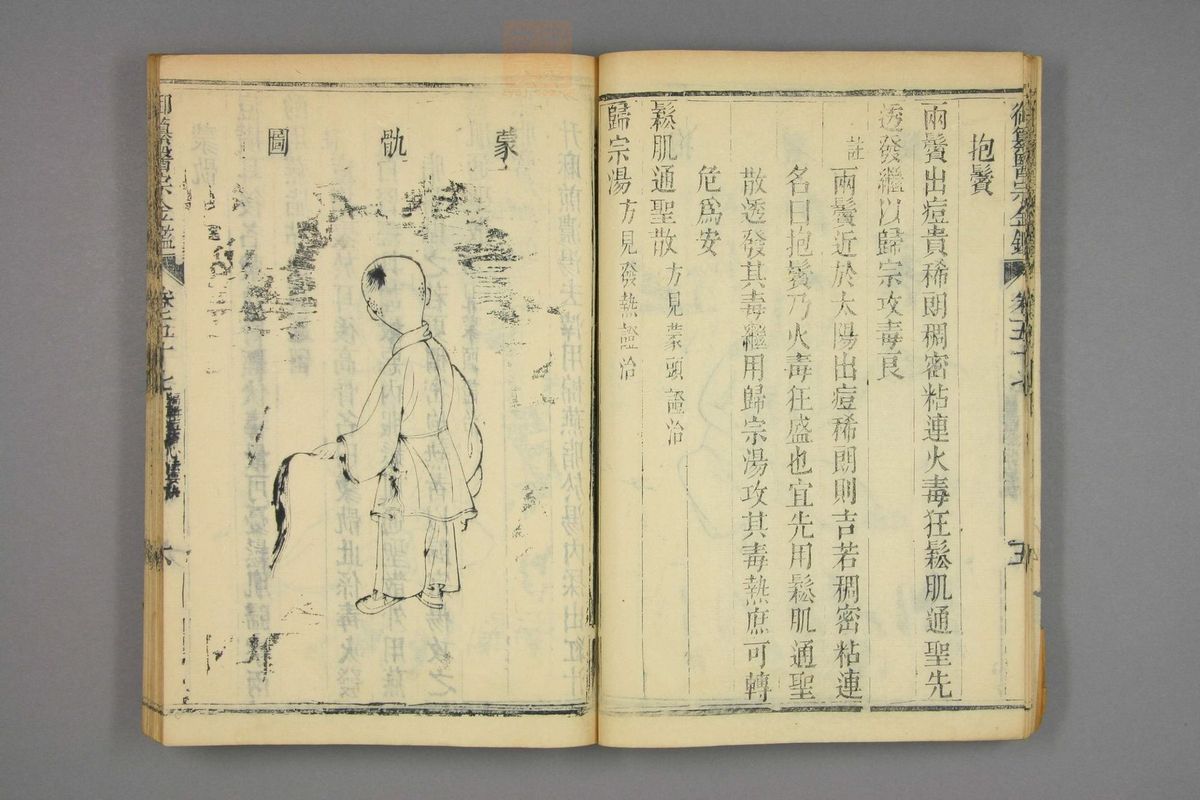 抱鬢
兩鬢出痘貴稀朗稠密粘連火毒狂鬆肌通聖先
透發繼以歸宗攻毒良
註
兩鬢近於太陽出痘稀朗則吉若稠密粘連
名曰抱鬢乃火毒狂盛也宜先用鬆肌通聖
散透發其毒繼用歸宗湯攻其毒熱庶可轉
危爲安
鬆肌通聖散方見蒙頭證治
歸宗湯方見發熱證治
御纂醫宗金鑑
卷五十七
五
蒙骩圖
御纂醫宗金鑑
卷五十七
六